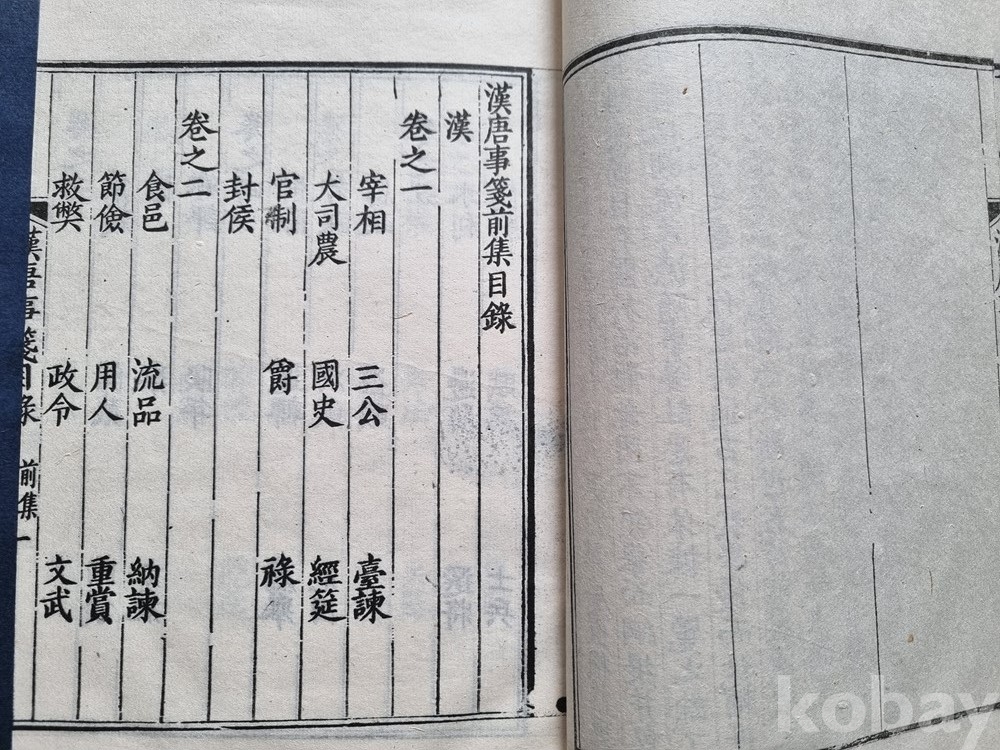 漢唐事箋前集目錄
漢
卷之一
宰相 三公 臺諫
大司農 國史 經筵
官制 爵 祿
封侯
卷之二
食邑 流品 納諫
節儉 用人 重賞
救弊 政令 文武
漢唐事箋目錄 前集 一
kobay